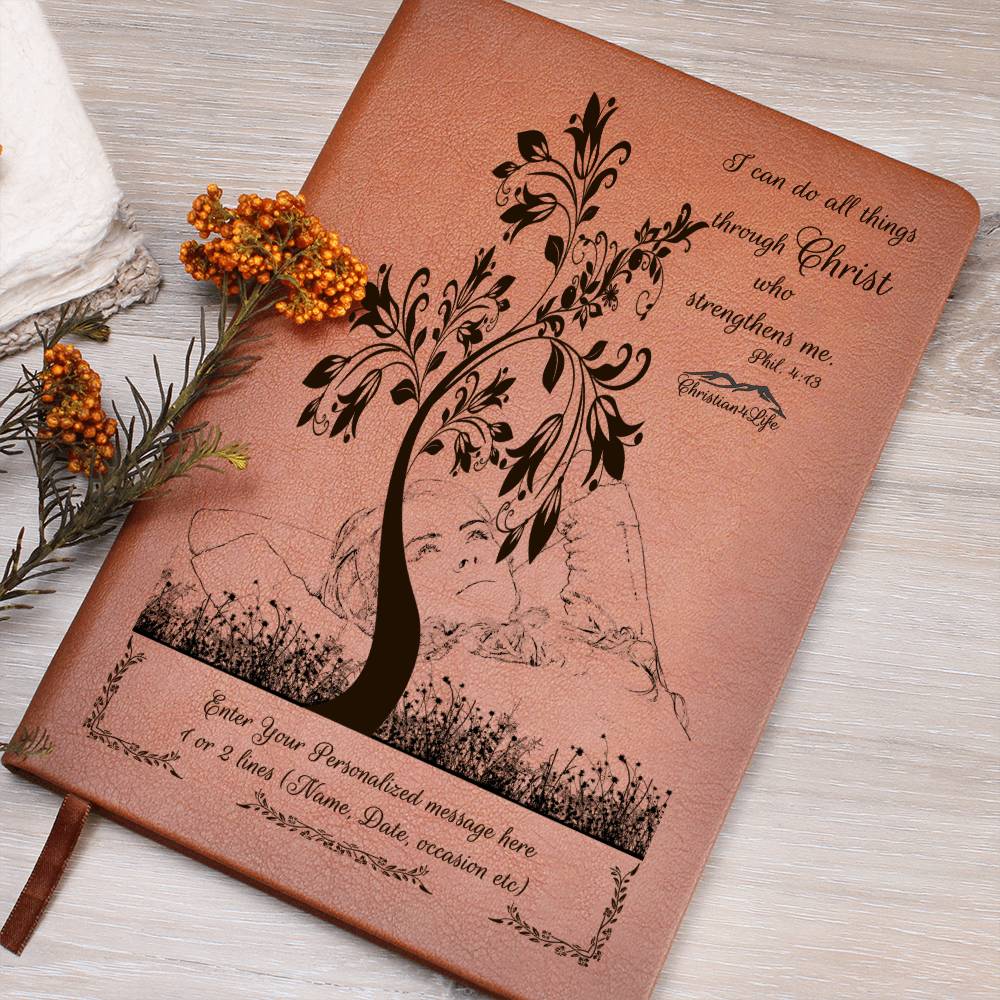 I can do all things
through Christ
who
strengthens me.
Phil. 4:13
Christian4Life
Enter Your Personalized message here
1 or 2 lines (Name, Date, occasion etc)